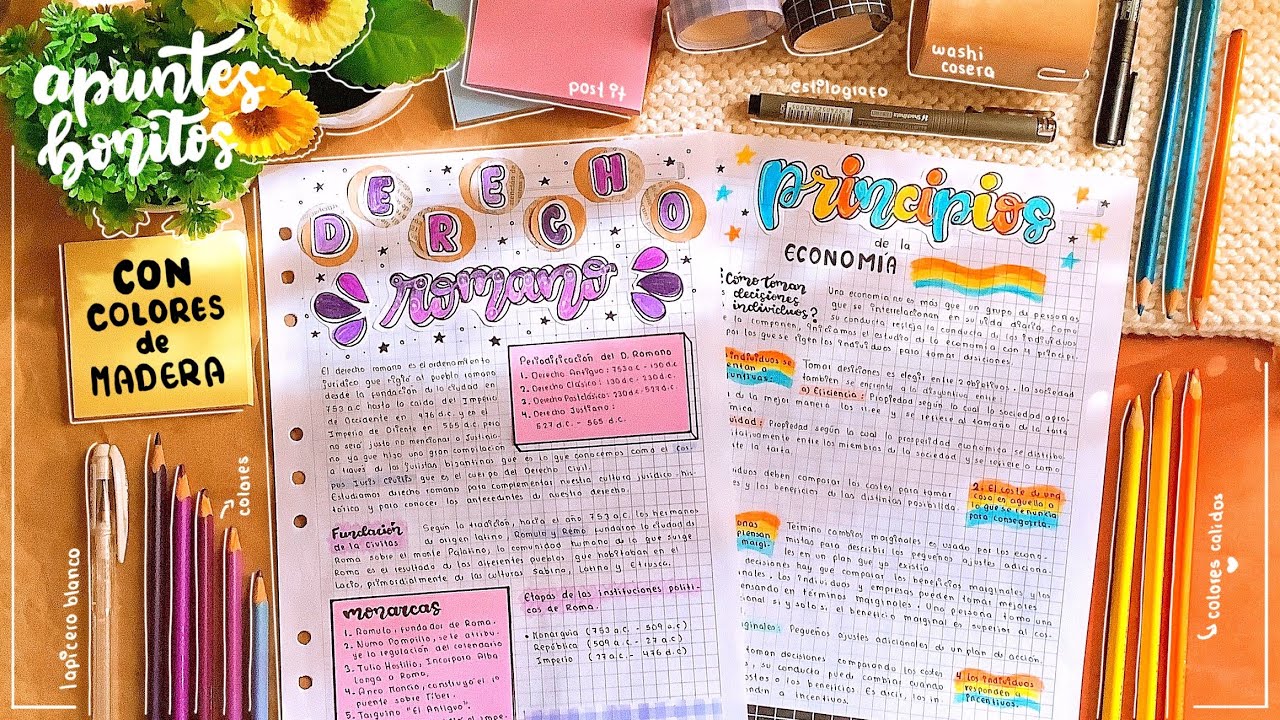 apuntes
bonitos
CON
COLORES
de
MADERA
post it
washi
casera
estilografo
colores
lapicero blanco
colores calidos
DERECHO
romano
El derecho romano es el ordenamiento
jurídico que rigió al pueblo romano
desde la fundación de la ciudad en
753 a.C hasta la caída del Imperio
de Occidente en 476 d.C. y en el
Imperio de Oriente en 565 d.C. pero
no sería justo no mencionar a Justinia-
no ya que hizo una gran compilación
a través de los juristas bizantinos que es lo que conocemos como el Cor-
pus Iuris Civilis que es el cuerpo del Derecho Civil.
Estudiamos derecho romano para complementar nuestra cultura jurídica-his-
tórica y para conocer los antecedentes de nuestro derecho.
Periodificación del D. Romano
1. Derecho Antiguo: 753 a.c - 130 a.c
2. Derecho Clásico: 130 a.c - 230 d.c.
3. Derecho Postclásico: 230 d.c - 527 d.c.
4. Derecho Justiniano:
527 d.C. - 565 d.C.
Fundación
de la civitas
Según la tradición, hasta el año 753 a.C. los hermanos
de origen latino Rómulo y Remo fundaron la ciudad de
Roma sobre el monte Palatino, la comunidad humana de la que surge
Roma es el resultado de los diferentes pueblos que habitaban en el
Lacio, primordialmente de las culturas Sabino, Latino y Etrusca.
monarcas
1. Rómulo, fundador de Roma.
2. Numa Pompilio, se le atribu-
ye la regulación del calendario
3. Tulio Hostilio, Incorpora Alba
longa a Roma.
4. Anco Marcio, construyó el 1º
puente sobre Tíber.
5. Tarquino "El Antiguo".
Etapas de las instituciones políti-
cas de Roma.
• Monarquía (753 a.C. - 509 a.C)
República (509 a.C. - 27 a.C)
Imperio (27 a.C. - 476 d.C)
principios
de la
ECONOMÍA
¿Como toman
decisiones
individuos?
Una economía no es más que un grupo de personas
que se interrelacionan en su vida diaria. Como
su conducta refleja la conducta
la componen, iniciamos el estudio de la economía con 4 princi-
por los que se rigen los individuos para tomar decisiones.
individuos se
Tomar decisiones es elegir entre 2 objetivos, la sociedad
también se enfrenta a la disyuntiva entre:
a) Eficiencia: Propiedad según la cual la sociedad apro-
de la mejor manera los
y se refiere al tamaño de la tarta
Propiedad según la cual la prosperidad económica se distribu-
entre los miembros de la sociedad y se refiere a como
la tarta.
deben comparar los costes para tomar
y los beneficios de las distintas posibilida-
2. El coste de una
cosa es aquello a
lo que se renuncia
para conseguirla.
Término cambios marginales es usado por los econo-
mistas para describir los pequeños ajustes adiciona-
en un plan que ya existía.
decisiones hay que comparar los beneficios marginales y los
Los individuos y empresas pueden tomar mejores
pensando en términos marginales. Una persona toma una
y solo si, el beneficio marginal es superior al cos-
Pequeños ajustes adicionales de un plan de acción.
toman decisiones comparando los costes
su conducta puede cambiar cuando
costos o los beneficios. Es decir, los in-
responden a incentivos.
4. Los individuos
responden a
incentivos.